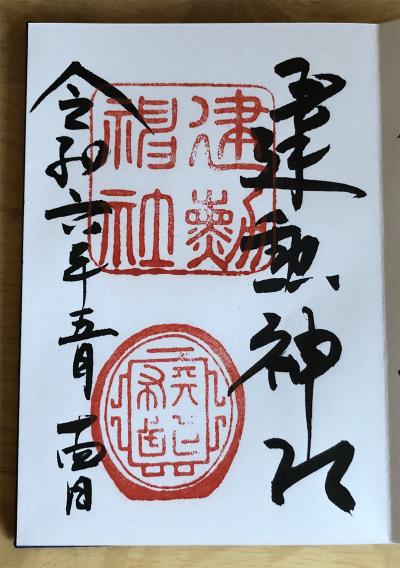 建勲神社
建勳
神社
令和六年五月十四日